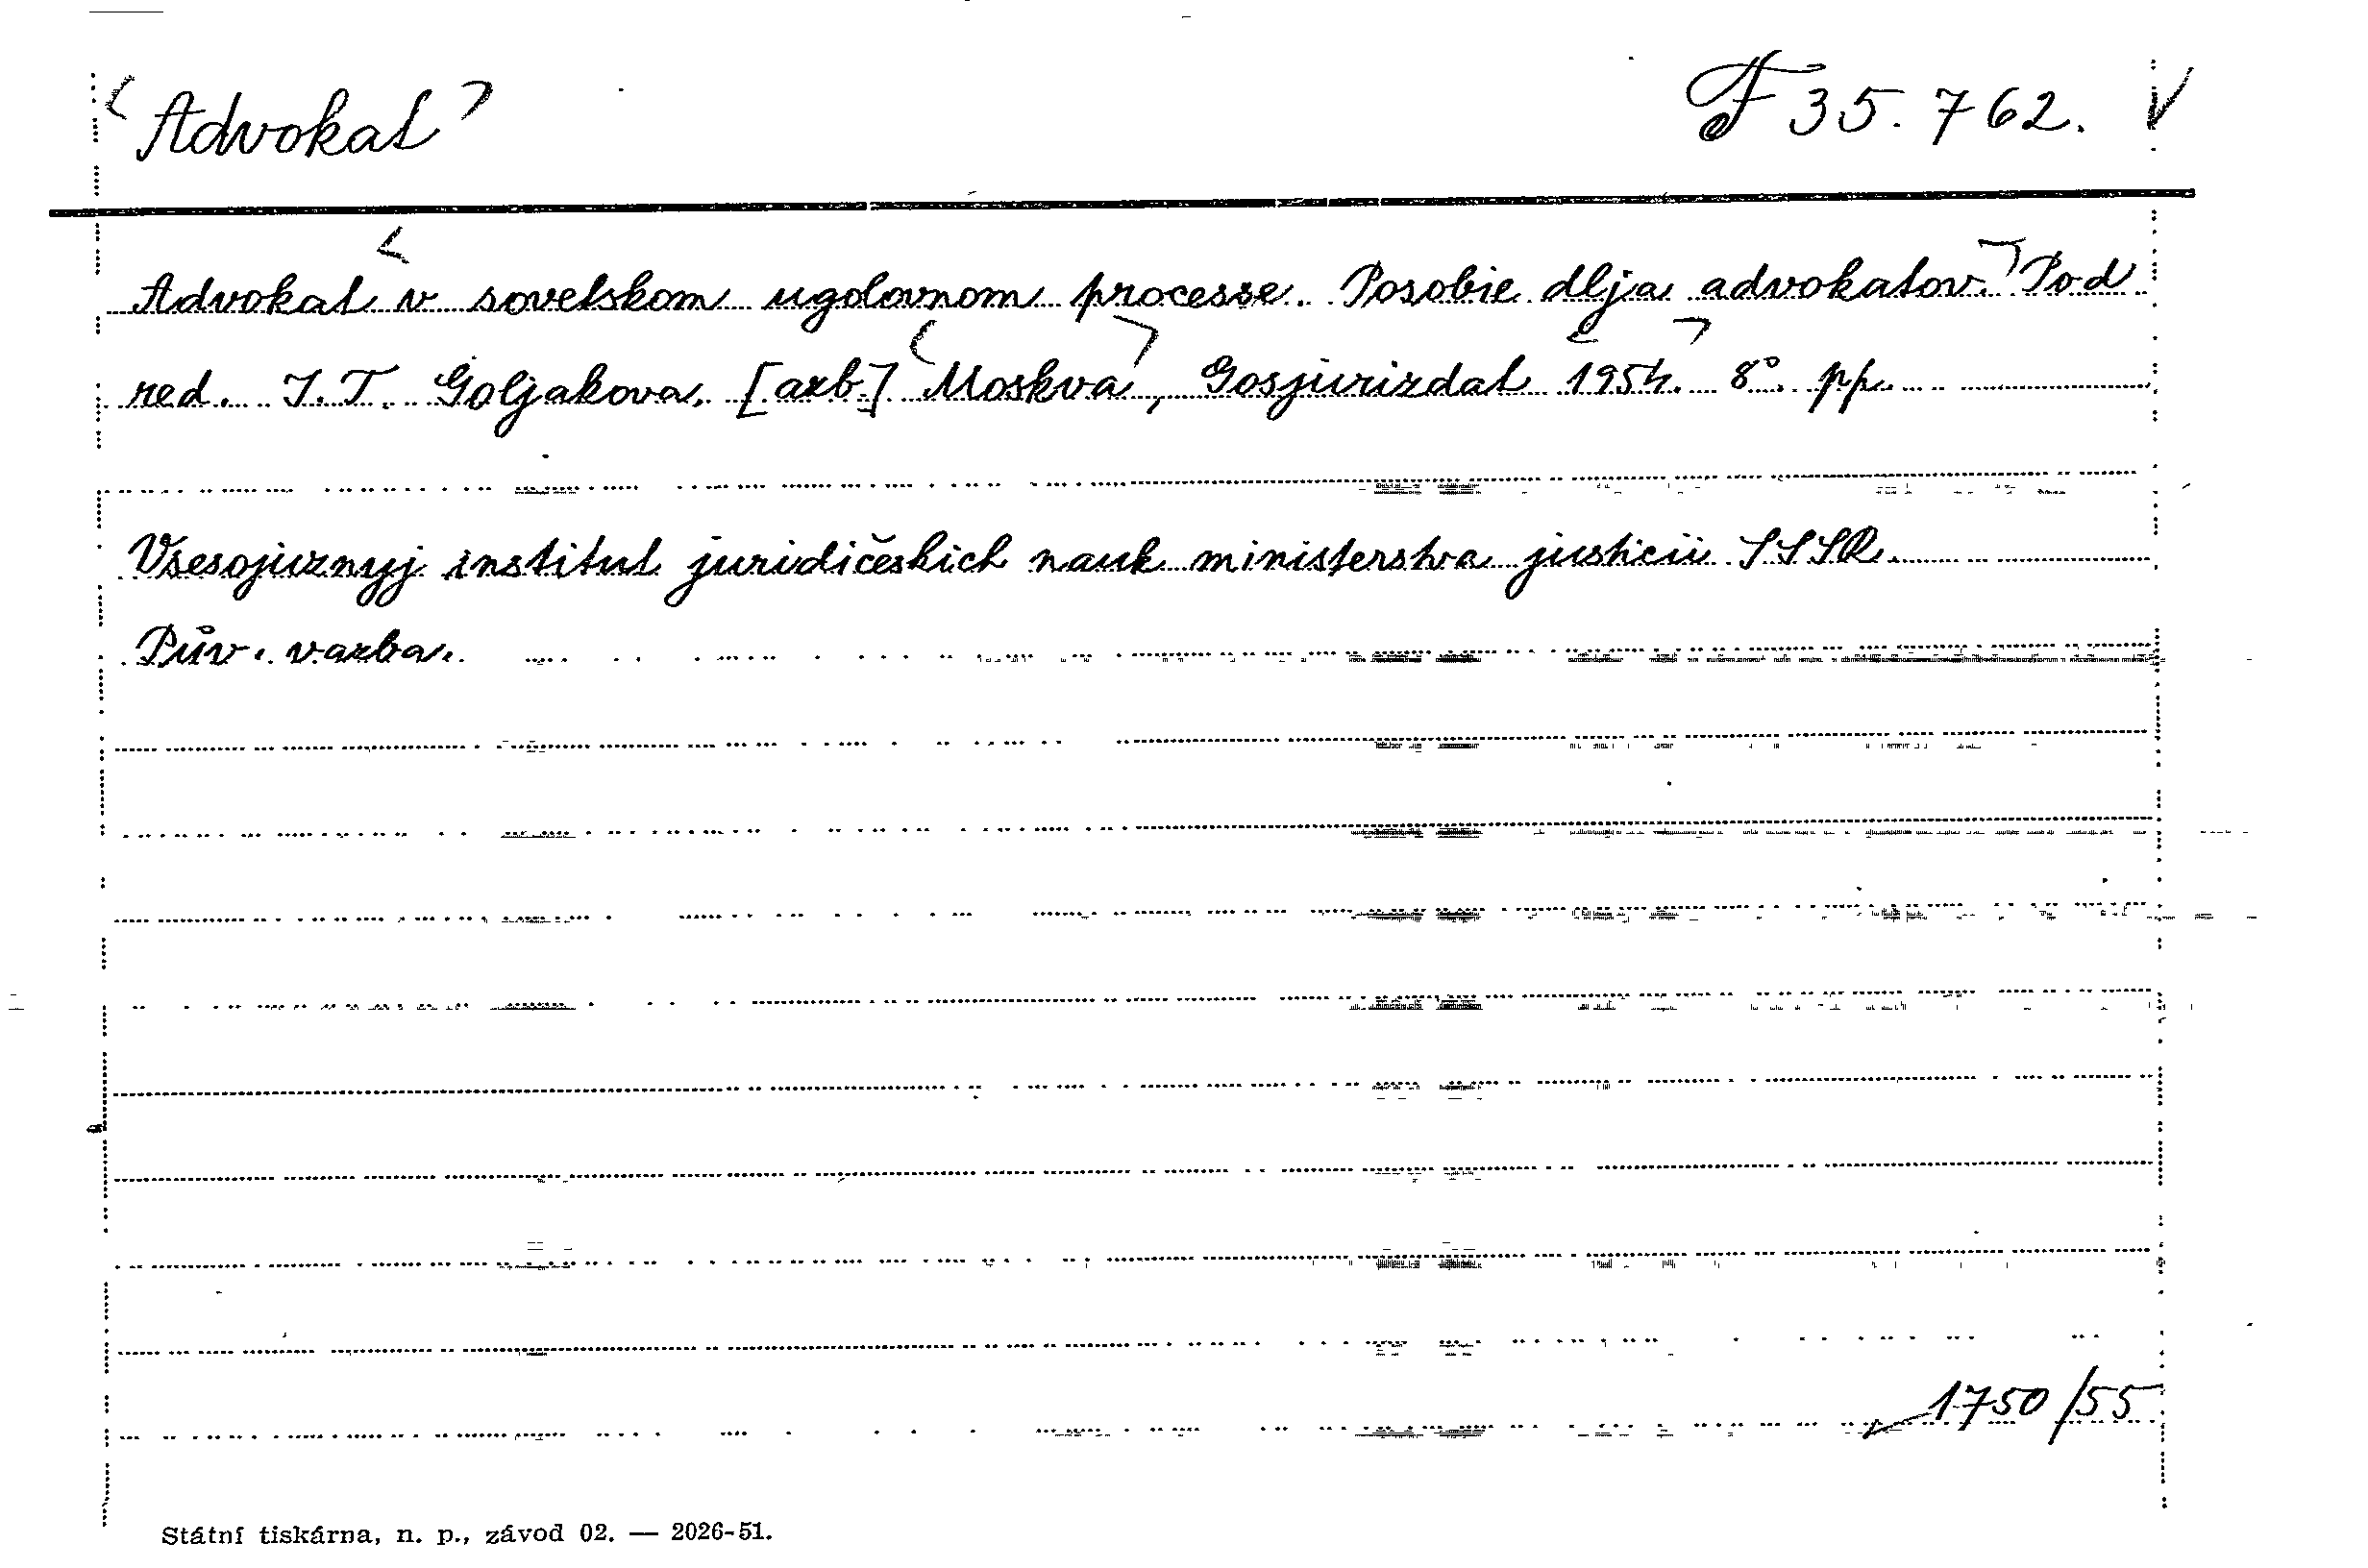 Advokat F 35.762.
Advokat v sovetskom ugolovnom processe. Posobie dlja advokatov. Pod
red. I.T. Goljakova. [azb.] Moskva, Gosjurizdat 1954. 8°. pp.
Vsesojuznyj institut juridičeskich nauk ministerstva justicii SSSR.
Pův. vazba.
1750/55
Státní tiskárna, n. p., závod 02. — 2026-51.